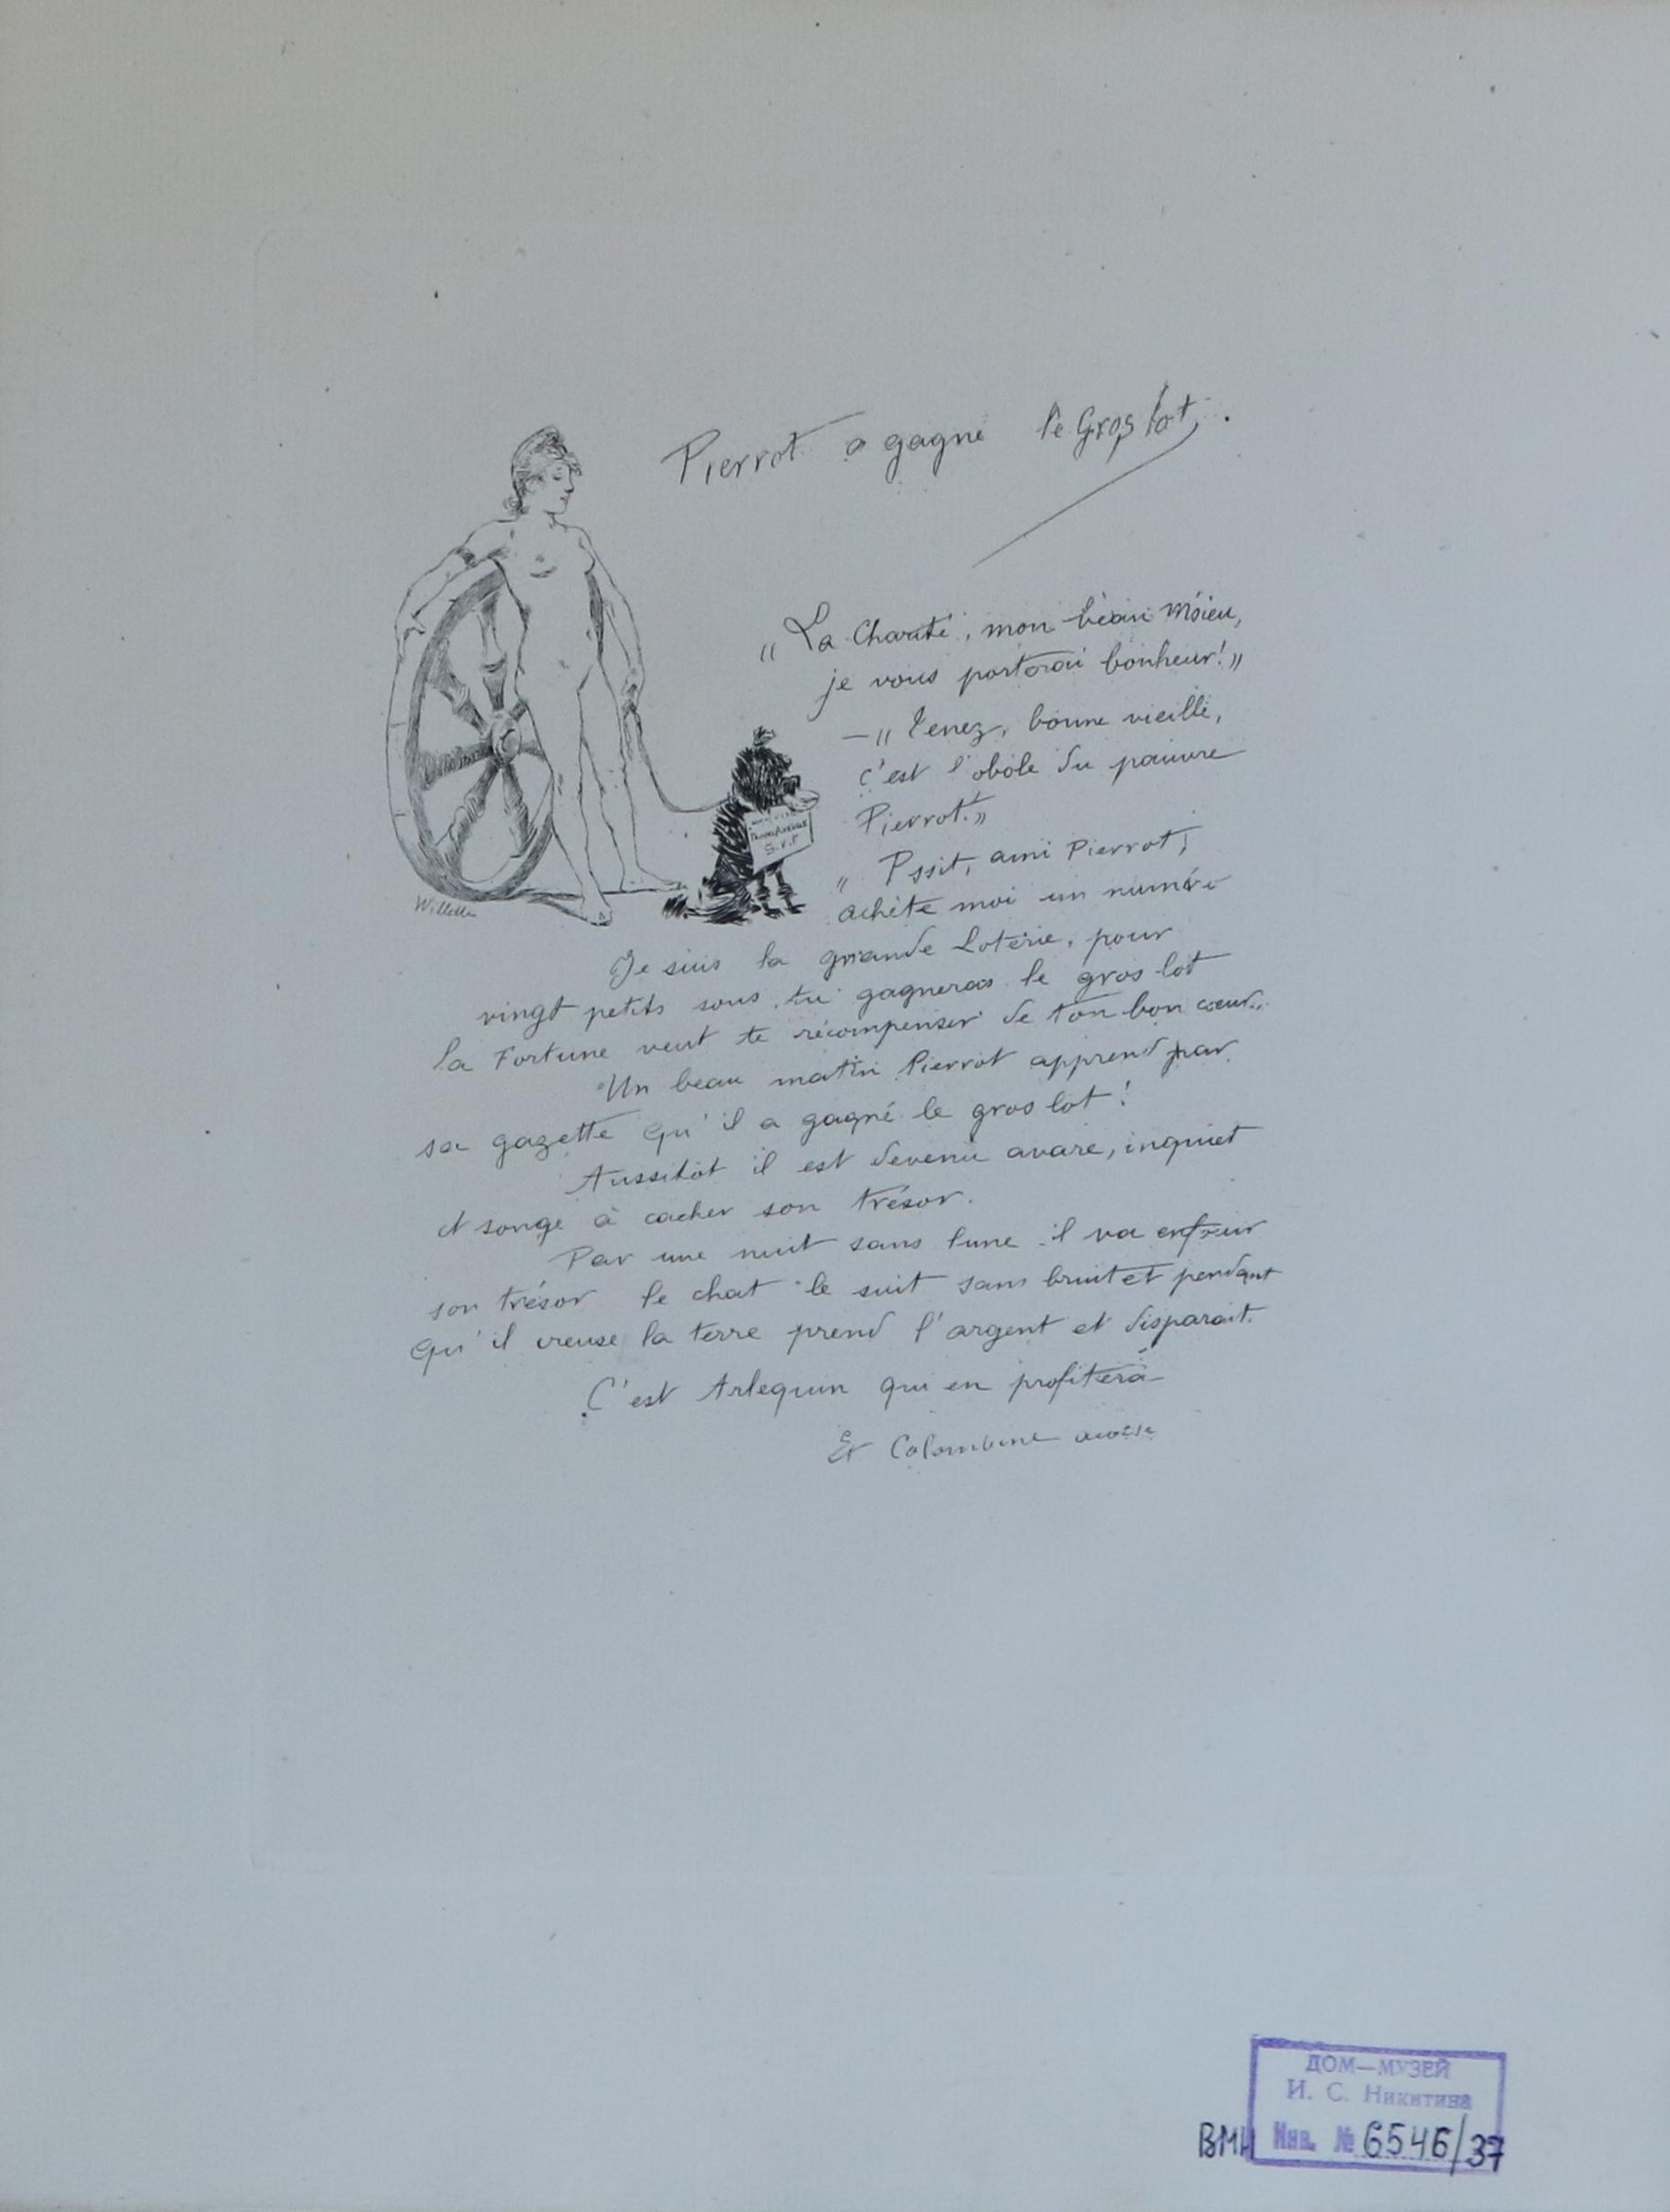 Pierrot a gagné le Gros lot.
„La Charité, mon beau M'sieu,
je vous porterai bonheur!„
—„Tenez, bonne vieille,
c'est l'obole du pauvre
Pierrot.„
„Pssit, ami Pierrot,
achète moi un numéro
Je suis la grande Loterie, pour
vingt petits sous tu gagneras le gros lot
la Fortune veut te récompenser de ton bon cœur..
Un beau matin Pierrot apprend par
sa gazette qu'il a gagné le gros lot!
Aussitôt il est devenu avare, inquiet
et songe à cacher son trésor.
Par une nuit sans lune il va enfouir
son trésor le chat le suit sans bruit et pendant
qu'il creuse la terre prend l'argent et disparait.
C'est Arlequin qui en profitera
Et Colombine aussi
Willette
S.V.P
ДОМ—МУЗЕЙ
И. С. Никитина
ВМН Инв. № 6546/37